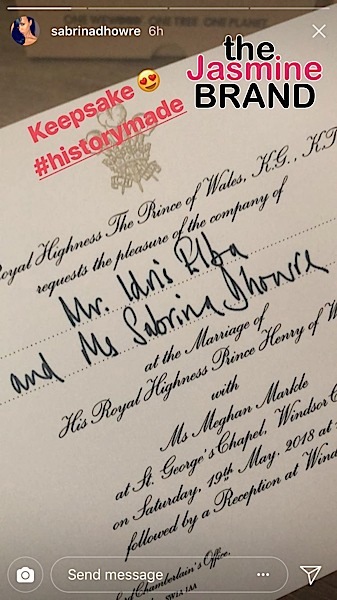 ONE WOMEN ONE TREE. ONE PLANET.
sabrinadhowre 6h
the
Jasmine
BRAND
Keepsake 😍
#historymade
Royal Highness The Prince of Wales, K.G., K.T
requests the pleasure of the company of
Mr. Idris Elba
and Ms Sabrina Dhowre
at the Marriage of
His Royal Highness Prince Henry of W
with
Ms Meghan Markle
at St. George's Chapel, Windsor C
on Saturday, 19th May, 2018 at
followed by a Reception at Wind
Chamberlain's Office,
SW1A 1AA
Send message